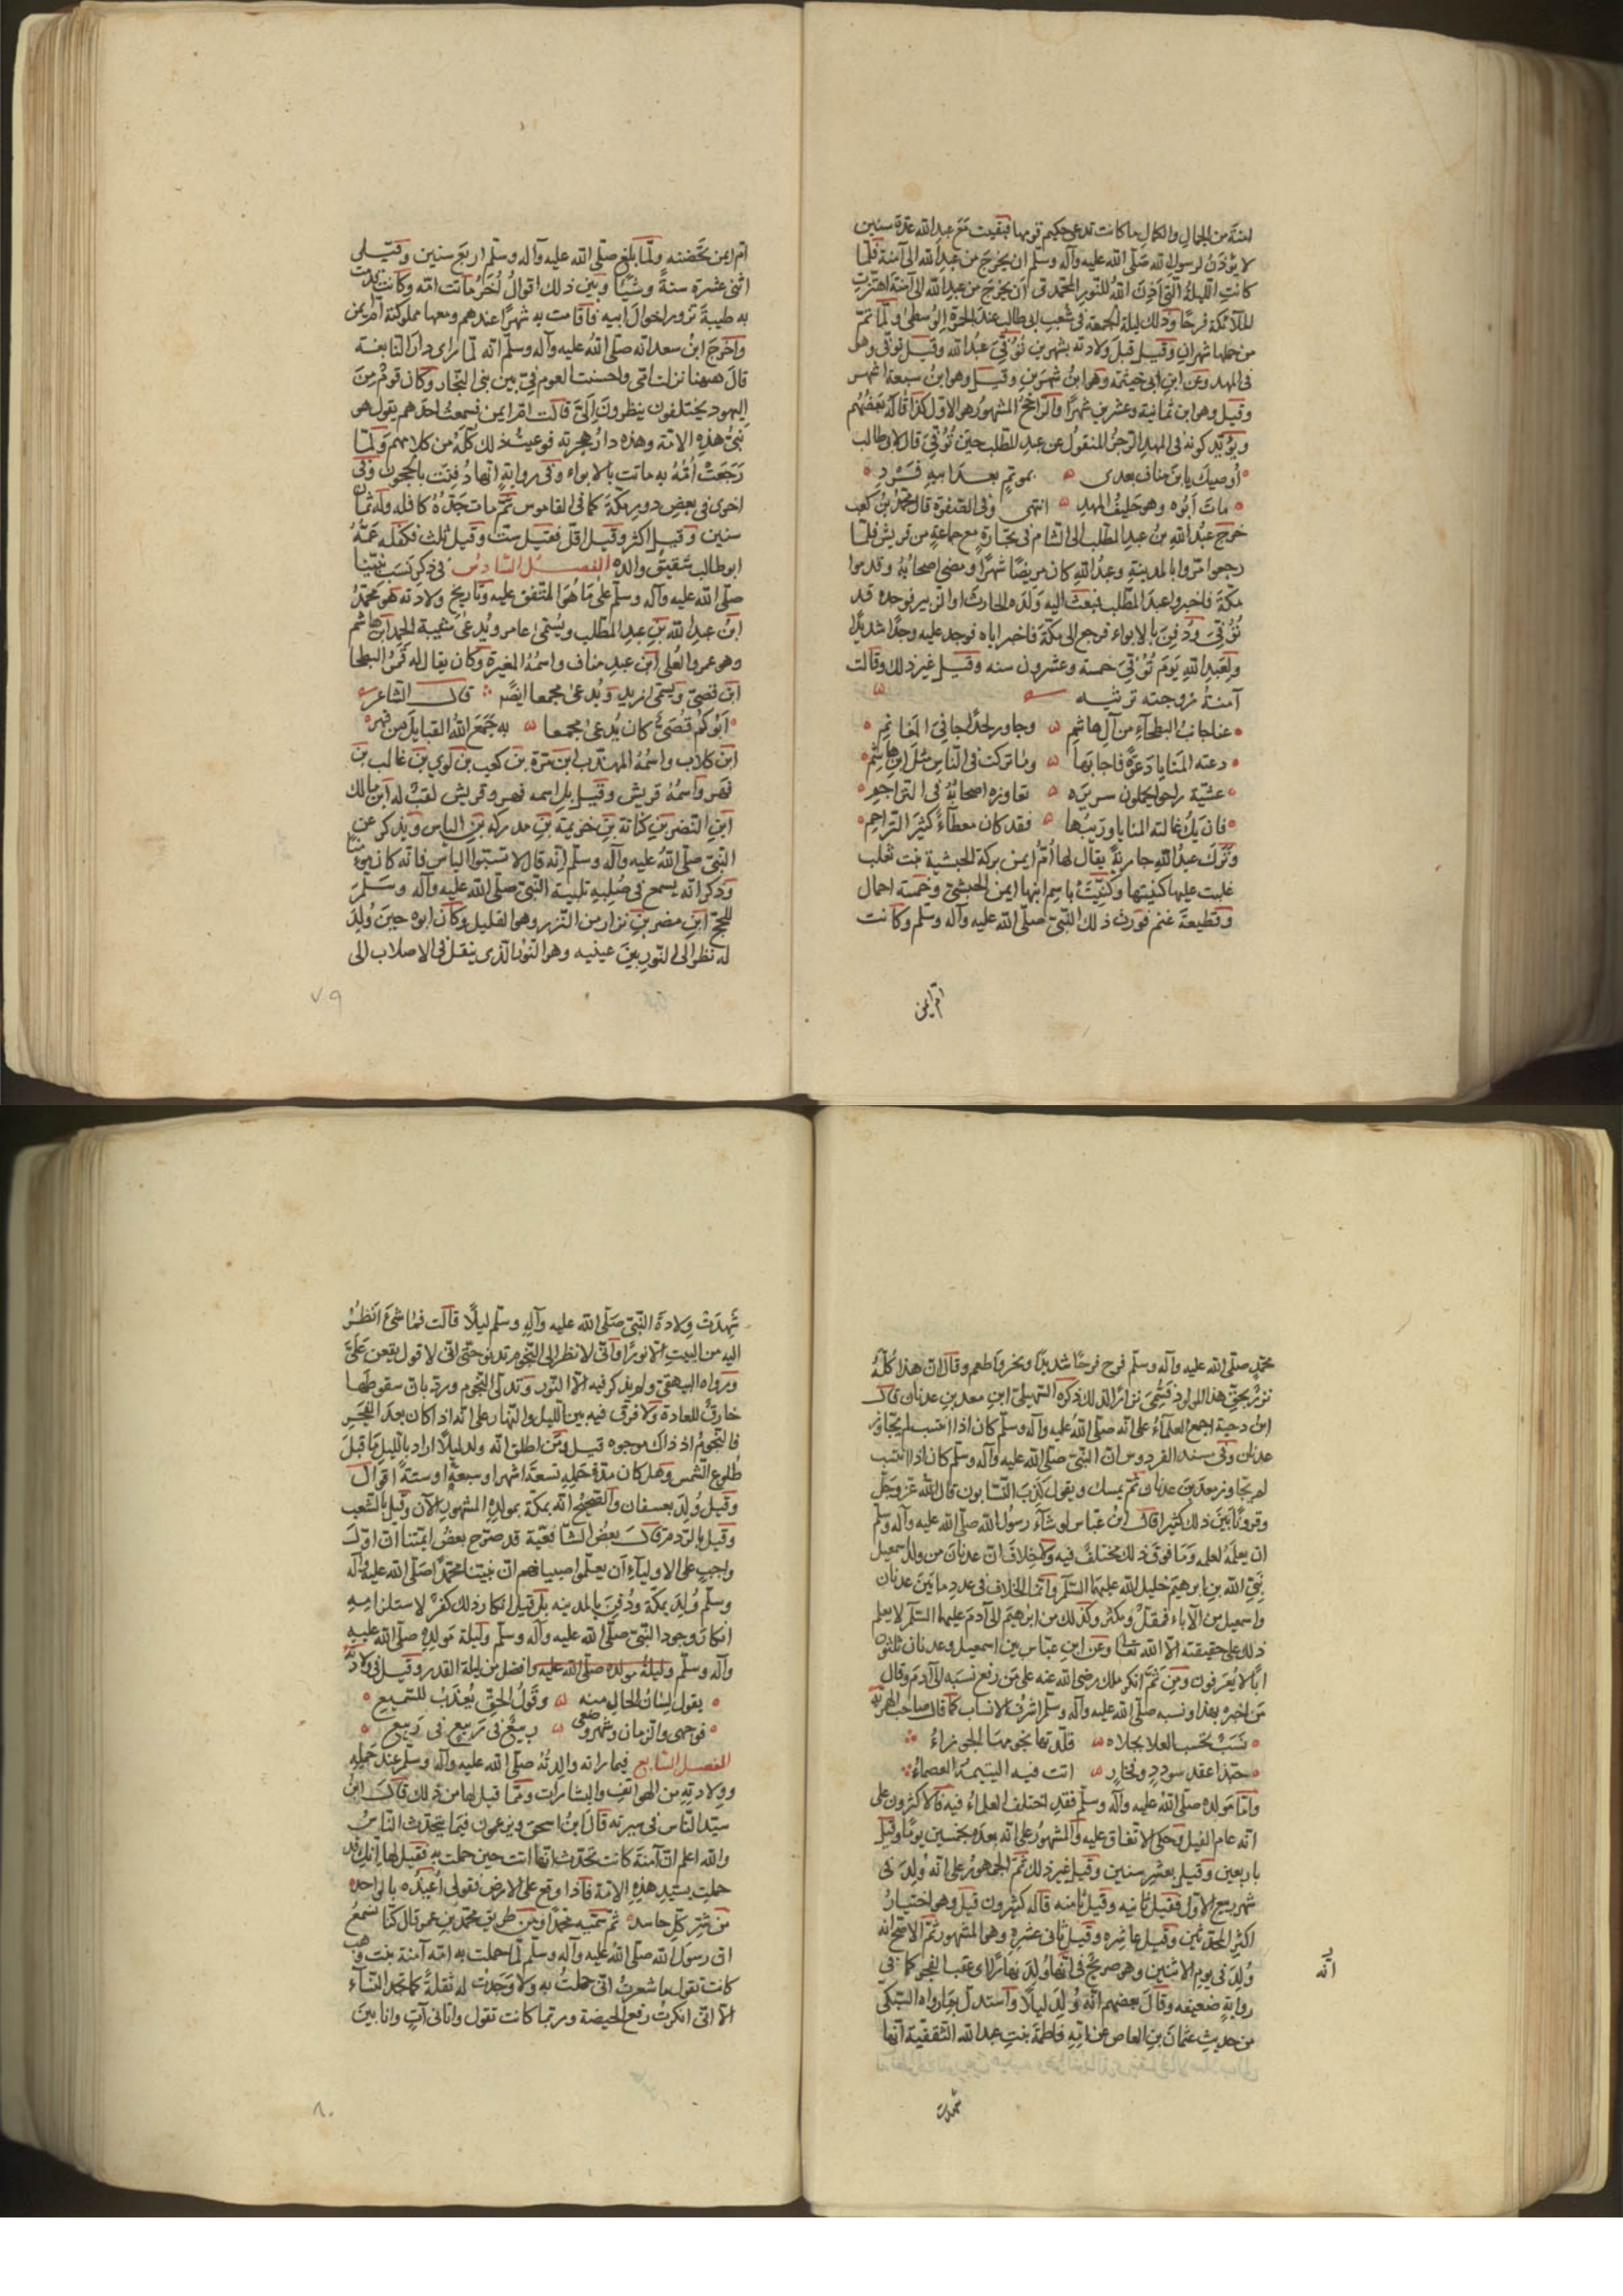 امنة من الجمال والكمال ما كانت تدعى حكيم قومها فبقيت مع عبد الله عدة سنين
لا يؤذن لرسول الله صلى الله عليه وآله وسلم ان يخرج من عبد الله الى آمنة فلما
كانت الليلة التى اذن الله للنور المحمدى ان يخرج من عبد الله الى آمنة اهتزت
الملائكة فرحا وذلك ليلة الجمعة فى شعب ابى طالب عند الجمرة الوسطى ولما تم
من حملها شهران وقيل قبل ولادته بشهرين توفى عبد الله وقيل توفى وهو
فى المهد وعن ابن ابى خيثمة وهو ابن شهرين وقيل وهو ابن سبعة اشهر
وقيل وهو ابن ثمانية وعشرين شهرا والراجح المشهور هو الاول كذا قاله بعضهم
ويؤيد كونه فى المهد الرجز المنقول عن عبد المطلب حين توفى قال لابى طالب
اوصيك يا بن مناف بعدى بموتم بعد ابيه فرد
مات ابوه وهو حليف المهد انتهى وفى الصفوة قال محمد بن كعب
خرج عبد الله بن عبد المطلب الى الشام فى تجارة مع جماعة من قريش فلما
رجعوا مروا بالمدينة وعبد الله كان مريضا شهرا ومضى اصحابه وقدموا
مكة فاخبروا عبد المطلب فبعث اليه ولده الحارث او الزبير فوجده قد
توفى ودفن بالابواء فرجع الى مكة فاخبر اباه فوجد عليه وجدا شديدا
ولعبد الله يوم توفى خمسة وعشرون سنه وقيل غير ذلك وقالت
آمنة زوجته ترثيه
عفا جانب البطحاء من آل هاشم وجاور لحدا جانى الغماغم
دعته المنايا دعوة فاجابها وما تركت فى الناس مثل ابن هاشم
عشية راحوا يحملون سريره تعاوره اصحابه فى التزاحم
فان يك غالته المنايا وريبها فقد كان معطاء كثير التراحم
وترك عبد الله جارية يقال لها ام ايمن بركة الحبشية بنت ثعلب
غلبت عليها كنيتها وكنيت باسم ابنها ايمن الحبشى وخمسة اجمال
وقطيعة غنم فورث ذلك النبى صلى الله عليه وآله وسلم وكانت
ام ايمن
ام ايمن تحضنه ولما بلغ صلى الله عليه وآله وسلم اربع سنين وقيل
اثنى عشرة سنة وشيئا وبين ذلك اقوال اخر ماتت امه وكانت قدمت
به طيبة تزور اخوال ابيه فاقامت به شهرا عندهم ومعها مملوكته ام ايمن
واخرج ابن سعد انه صلى الله عليه وآله وسلم انه لما راى دار النابغة
قال ههنا نزلت امى واحسنت العوم فى بئر بنى النجار وكان قوم من
اليهود يختلفون ينظرون الى قالت ام ايمن فسمعت احدهم يقول هو
نبى هذه الامة وهذه دار هجرته فوعيت ذلك كله من كلامهم ولما
رجعت امه به ماتت بالابواء وفى رواية انها دفنت بالحجون وفى
اخرى فى بعض دور مكة كما فى القاموس ثم مات جده كافله وله ثمان
سنين وقيل اكثر وقيل اقل فقيل ست وقيل ثلث فكفله عمه
ابو طالب شقيق والده الفصل السادس فى ذكر نسب نبينا
صلى الله عليه وآله وسلم على ما هو المتفق عليه وتاريخ ولادته هو محمد
ابن عبد الله بن عبد المطلب ويسمى عامر ويدعى شيبة الحمد ابن هاشم
وهو عمرو العلى ابن عبد مناف واسمه المغيرة وكان يقال له قمر البطحا
ابن قصى ويسمى زيد ويدعى مجمعا ايضا قال الشاعر
ابوكم قصى كان يدعى مجمعا به جمع الله القبايل من فهر
ابن كلاب واسمه المهذب ابن مرة بن كعب بن لوى بن غالب بن
فهر واسمه قريش وقيل بل اسمه فهر وقريش لقب له ابن مالك
ابن النضر بن كنانة بن خزيمة بن مدركة بن الياس ويذكر عن
النبى صلى الله عليه وآله وسلم انه قال لا تسبوا الياس فانه كان مؤمنا
وذكر انه يسمع فى صلبه تلبية النبى صلى الله عليه وآله وسلم
للحج ابن مضر بن نزار من النزر وهو القليل وكان ابوه حين ولد
له نظر الى النور بين عينيه وهو النور الذى ينقل فى الاصلاب الى
٧٩
محمد صلى الله عليه وآله وسلم فرح فرحا شديدا ونحر واطعم وقال ان هذا كله
نزر بحق هذا المولود فسمى نزارا لذلك ذكره السهيلى ابن معد بن عدنان قال
ابن دحية اجمع العلماء على انه صلى الله عليه وآله وسلم كان اذا انتسب لم يتجاوز
عدنان وفى مسند الفردوس ان النبى صلى الله عليه وآله وسلم كان اذا انتسب
لم يتجاوز معد بن عدنان ثم يمسك ويقول كذب النسابون قال الله عز وجل
وقرونا بين ذلك كثيرا قال ابن عباس لو شآء رسول الله صلى الله عليه وآله وسلم
ان يعلمه لعلمه وما فوق ذلك مختلف فيه ولا خلاف ان عدنان من ولد اسمعيل
نبى الله بن ابراهيم خليل الله عليهما السلم وانما الخلاف فى عدد ما بين عدنان
واسمعيل من الآباء فمقل ومكثر وكذلك من ابراهيم الى آدم عليهما السلم لا يعلم
ذلك على حقيقته الا الله تعالى وعن ابن عباس بين اسمعيل وعدنان ثلثون
ابا لا يعرفون ومن ثم انكر ملك رضى الله عنه على من رفع نسبه الى آدم وقال
من اخبره بهذا ونسبه صلى الله عليه وآله وسلم اشرف الانساب كما قال صاحب الهمزية
نسب تحسب العلا بحلاه قلدتها نجومها الجوزاء
حبذا عقد سودد وفخار انت فيه اليتيمة العصماء
واما مولده صلى الله عليه وآله وسلم فقد اختلف العلماء فيه فالاكثرون على
انه عام الفيل وحكى الاتفاق عليه والمشهور على انه بعده بخمسين يوما وقيل
باربعين وقيل بعشر سنين وقيل غير ذلك ثم الجمهور على انه ولد فى
شهر ربيع الاول فقيل ثانيه وقيل ثامنه قاله كثيرون قيل وهو اختيار
اكثر المحدثين وقيل عاشره وقيل ثانى عشره وهو المشهور ثم الاصح انه
ولد فى يوم الاثنين وهو صريح فى انه ولد نهارا اى عقب الفجر كما فى
رواية ضعيفه وقال بعضهم انه ولد ليلا واستدل بما رواه السبكى
من حديث عثمان بن العاص عن امه فاطمة بنت عبد الله الثقفية انها
انه
شهدت
شهدت ولادة النبى صلى الله عليه وآله وسلم ليلا قالت فما شئ انظر
اليه من البيت الا نورا وانى لانظر الى النجوم تدنو حتى انى لاقول يقعن على
ورواه البيهقى ولم يذكر فيه الا النور وتدلى النجوم ورد بان سقوطها
خارق للعادة ولا فرق فيه بين الليل والنهار على انه اذا كان بعد الفجر
فالنجوم اذ ذاك موجوه قيل ومن اطلق انه ولد ليلا اراد بالليل ما قبل
طلوع الشمس وهل كان مدة حمله تسعة اشهر او سبعة او ستة اقوال
وقيل ولد بعسفان والصحيح انه بمكة بمولده المشهور الآن وقيل بالشعب
وقيل بالردم قال بعض الشافعية قد صرح بعض ائمتنا ان اول
واجب على الاولياء ان يعلموا صبيانهم ان نبينا محمدا صلى الله عليه وآله
وسلم ولد بمكة ودفن بالمدينه بل قيل انكار ذلك كفر لاستلزامه
انكار وجود النبى صلى الله عليه وآله وسلم وليلة مولده صلى الله عليه
وآله وسلم وليلة مولده صلى الله عليه وافضل من ليلة القدر وقيل فى ولادته
يقول لسان الحال منه وقول الحق يعذب للسميع
فوجهى والزمان وشهر وضعى ربيع فى ربيع فى ربيع
الفصل السابع فيما راته والدته صلى الله عليه وآله وسلم عند حمله
وولادته من الهواتف والبشارات ومما قيل لها من ذلك قال ابن
سيد الناس فى سيرته قال ابن اسحق ويزعمون فيما يتحدث الناس
والله اعلم ان آمنة كانت تحدث انها اتت حين حملت به فقيل لها انك قد
حملت بسيد هذه الامة فاذا وقع على الارض فقولى اعيذه بالواحد
من شر كل حاسد ثم سميه محمدا ومن طريق محمد بن عمر قال كنا نسمع
ان رسول الله صلى الله عليه وآله وسلم لما حملت به امه آمنة بنت وهب
كانت تقول ما شعرت انى حملت به ولا وجدت له ثقلة كما تجد النساء
الا انى انكرت رفع الحيضة وربما كانت تقول واتانى آت وانا بين
٨٠